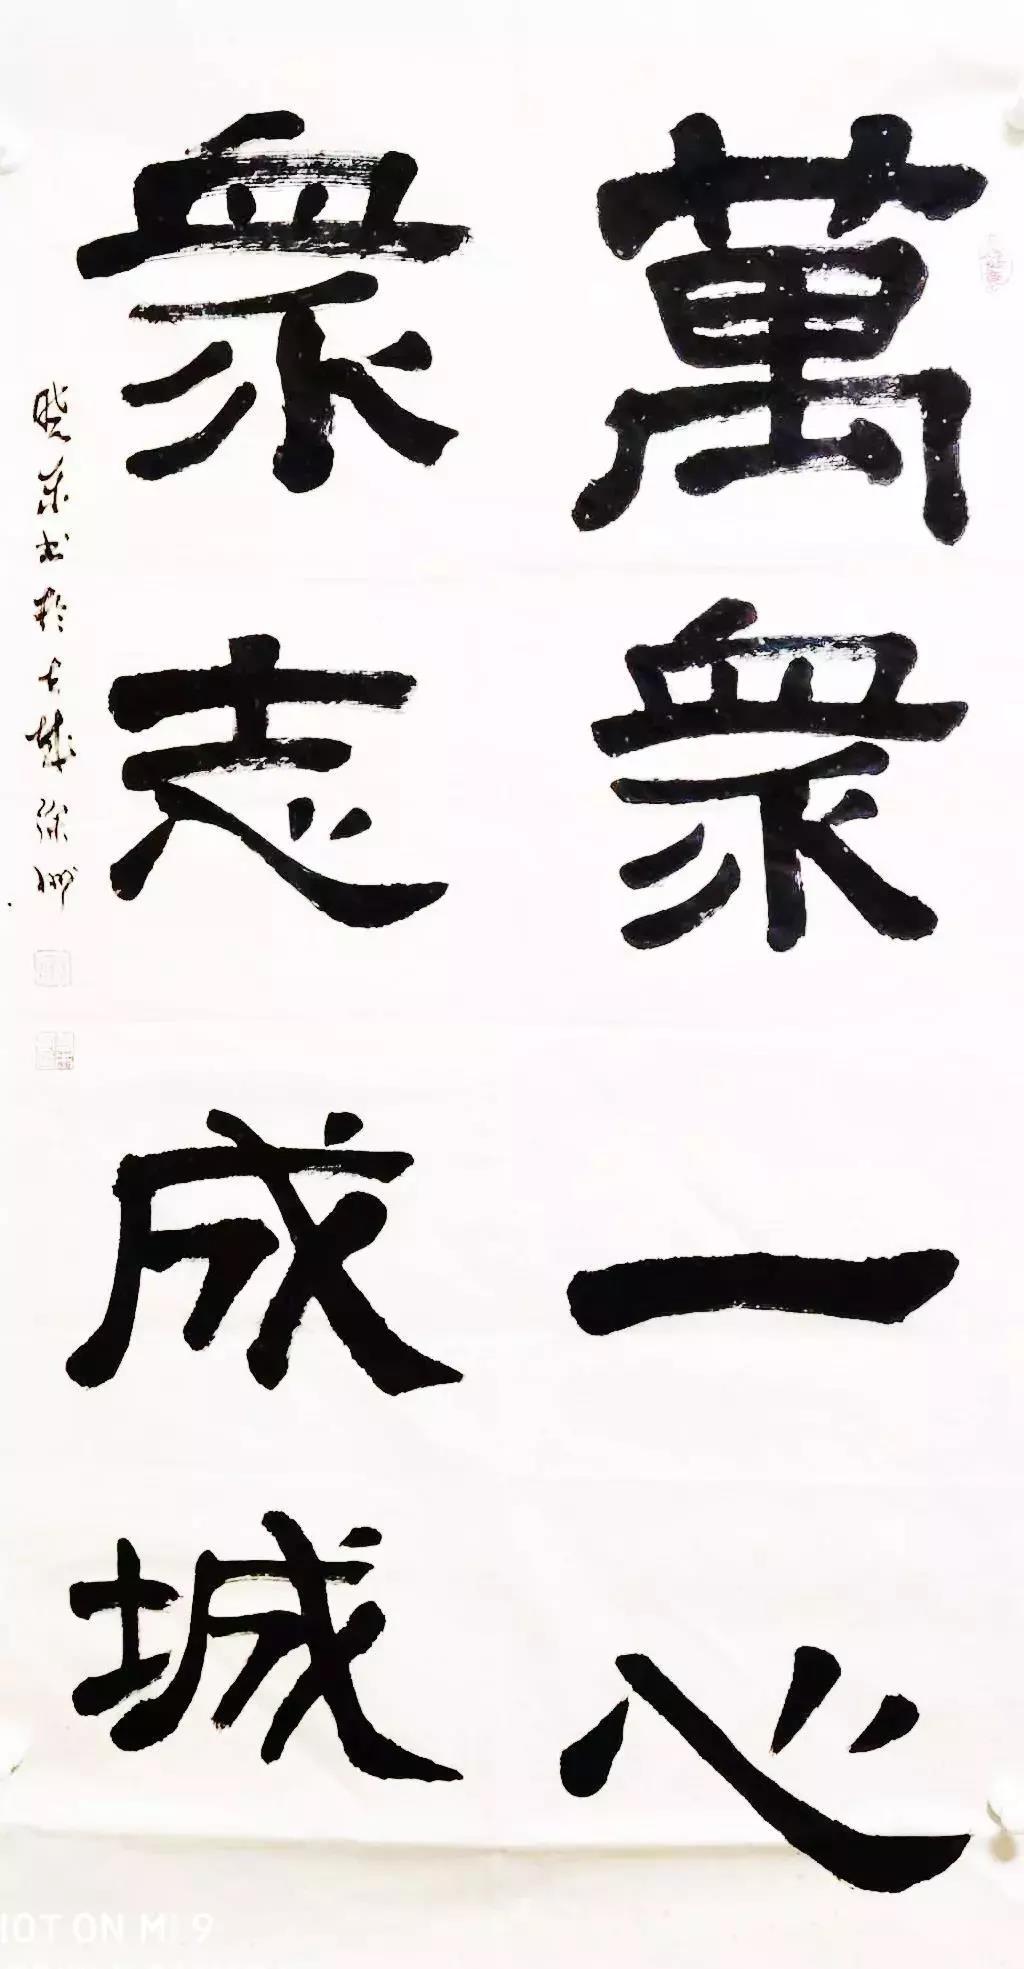 萬衆一心
衆志成城
晓荣书於古城徐州
HOT ON MI 9